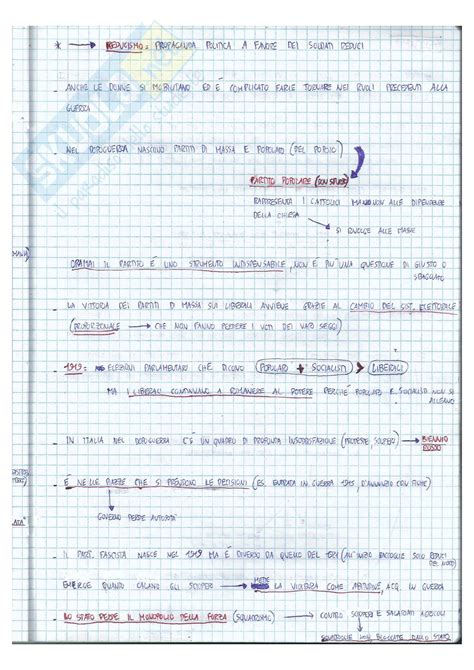 * → REDUCISMO: PROPAGANDA POLITICA A FAVORE DEI SOLDATI REDUCI
- ANCHE LE DONNE SI MOBILITANO ED È COMPLICATO FARLE TORNARE NEI RUOLI PRECEDENTI ALLA
GUERRA
- NEL DOPOGUERRA NASCONO PARTITI DI MASSA E POPOLARI (DEL POPOLO)
PARTITO POPOLARE (DON STURZO)
RAPPRESENTA I CATTOLICI MA NON ALLE DIPENDENZE
DELLA CHIESA
→ SI RIVOLGE ALLE MASSE
MASSA)
- ORAMAI IL PARTITO È UNO STRUMENTO INDISPENSABILE, NON È PIÙ UNA QUESTIONE DI GIUSTO O
SBAGLIATO
- LA VITTORIA DEI PARTITI DI MASSA SUI LIBERALI AVVIENE GRAZIE AL CAMBIO DEL SIST. ELETTORALE
(PROPORZIONALE → CHE NON FANNO PERDERE I VOTI DEI VARI SEGGI)
- 1919: ELEZIONI PARLAMENTARI CHE DICONO (POPOLARI + SOCIALISTI) > LIBERALI
MA I LIBERALI CONTINUANO A RIMANERE AL POTERE PERCHÉ POPOLARI E SOCIALISTI NON SI
ALLEANO
- IN ITALIA NEL DOPOGUERRA C'È UN QUADRO DI PROFONDA INSODDISFAZIONE (PROTESTE, SCIOPERI) → BIENNIO
ROSSO
- È NELLE PIAZZE CHE SI PRENDONO LE DECISIONI (ES. ENTRATA IN GUERRA 1915, D'ANNUNZIO CON FIUME)
→ GOVERNO PERDE AUTORITÀ
ATA"
- IL PART. FASCISTA NASCE NEL 1919 MA È DIVERSO DA QUELLO DEL (ALL'INIZIO RACCOGLIE SOLO REDUCI
EMERGE QUANDO CALANO GLI SCIOPERI → METTE LA VIOLENZA COME ABITUDINE, ACQ. IN GUERRA
- LO STATO PERDE IL MONOPOLIO DELLA FORZA (SQUADRISMO) → CONTRO SCIOPERI E SALARIATI AGRICOLI
SQUADRACCE NON BLOCCATE DALLO STATO